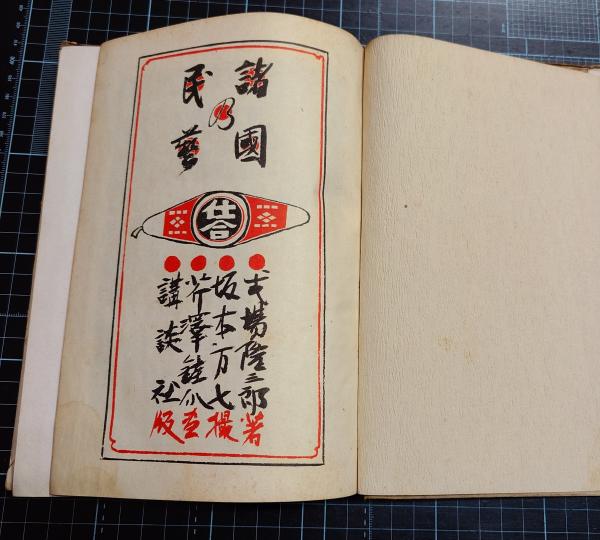 諸國
乃
民藝
仕合
式場隆三郎著
坂本万七撮
芹澤銈介画
講談社版